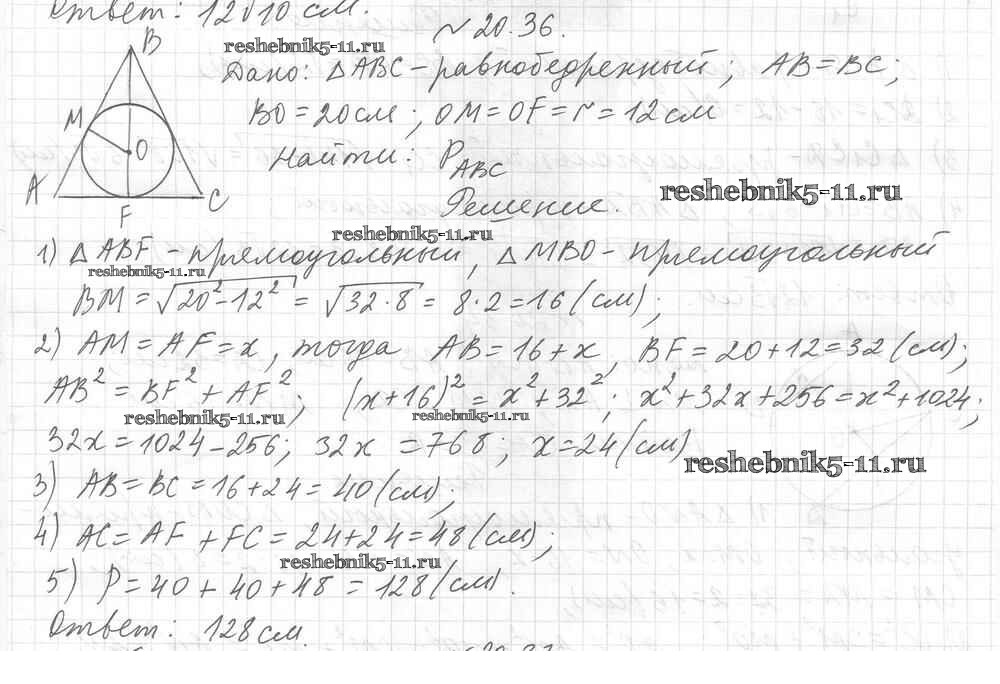 Ответ: 12√10 см.
№ 20.36.
reshebnik5-11.ru
Дано: △ABC – равнобедренный; AB = BC;
BO = 20 см; OM = OF = r = 12 см
Найти: P_ABC
reshebnik5-11.ru
Решение.
B
M
O
A
C
F
reshebnik5-11.ru
1) △ABF – прямоугольный, △MBO – прямоугольный
reshebnik5-11.ru
BM = √(20² – 12²) = √(32·8) = 8·2 = 16 (см);
2) AM = AF = x, тогда AB = 16 + x, BF = 20 + 12 = 32 (см);
AB² = BF² + AF²; (x+16)² = x² + 32²; x² + 32x + 256 = x² + 1024;
reshebnik5-11.ru
reshebnik5-11.ru
32x = 1024 – 256; 32x = 768; x = 24 (см)
reshebnik5-11.ru
3) AB = BC = 16 + 24 = 40 (см);
4) AC = AF + FC = 24 + 24 = 48 (см);
reshebnik5-11.ru
5) P = 40 + 40 + 48 = 128 (см).
Ответ: 128 см.